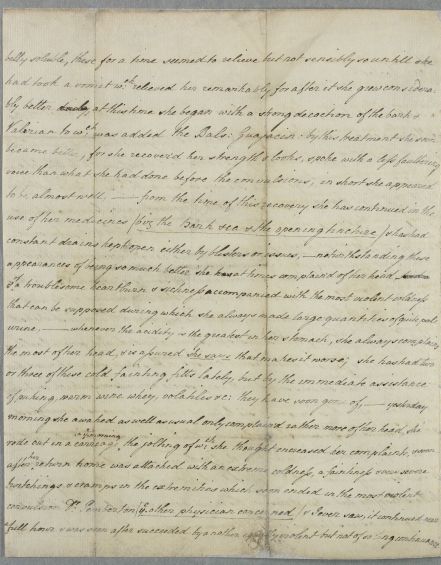 belly soluble, these for a time seemed to relieve but not sensibly so untill she
had took a vomit wch relieved her remarkably, for after it she grew considera-
bly better at this time she began with a strong decoction of the bark &
Valerian to wch was added the Bals: Guajacin: by this treatment she soon
became better, for she recover'd her strength & looks, spoke with a less faultering
voice than what she had done before the convulsions, in short she appeared
to be almost well. — from the time of this recovery she has continued in the
use of her medicines (viz the Bark &ca & the opening tincture) & has had
constant drains kept open either by blisters or issues, — notwithstanding these
appearances of being so much better she has at times complain'd of her head
of a troublesome heartburn & sickness accompanied with the most violent coldness
that can be supposed during which she always made large quantities of quite pale
urine, — whenever the acidity is the greatest in her stomach, she always complains
the most of her head, & is assured she says that makes it worse; she has had two
or three of these cold fainting fitts lately, but by the immediate assistance
of warm wine whey, volatiles &c: they have soon gone off, — yesterday
morning she awaked as well as usual only complain'd rather more of her head, she
rode out in a carriage, the jolting of wch she thought increased her complaint, soon
after her return home was attacked with an extreme coldness, a faintness some severe
twitchings & cramps in the extremities which soon ended in the most violent
convulsion Dr. Pemberton (ye other physician concerned) & I ever saw, it continued near
full hour & was soon after succeeded by another equally violent but not of so long continuance